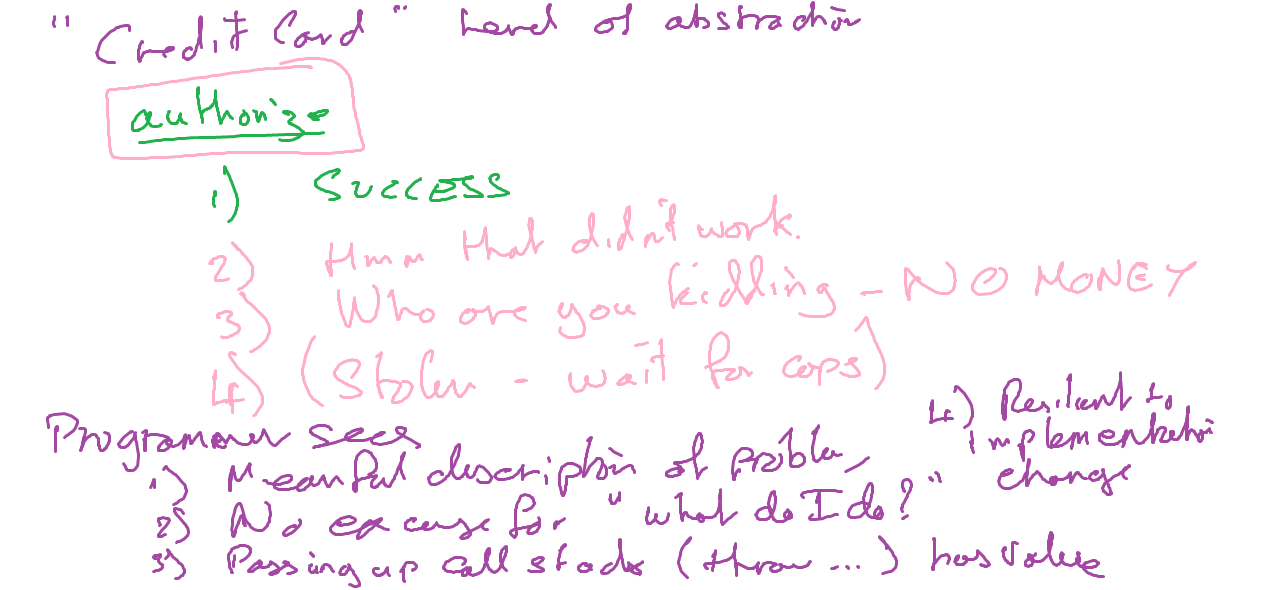 "Credit Card" Level of abstraction
authorize
1) SUCCESS
2) Hmm that didn't work.
3) Who are you kidding - NO MONEY
4) (Stolen - wait for cops)
Programmer sees
1) Meanful description of problem
2) No excuse for "what do I do?"
3) Passing up call stack (throw ...) has value
4) Resilient to
implementation
change